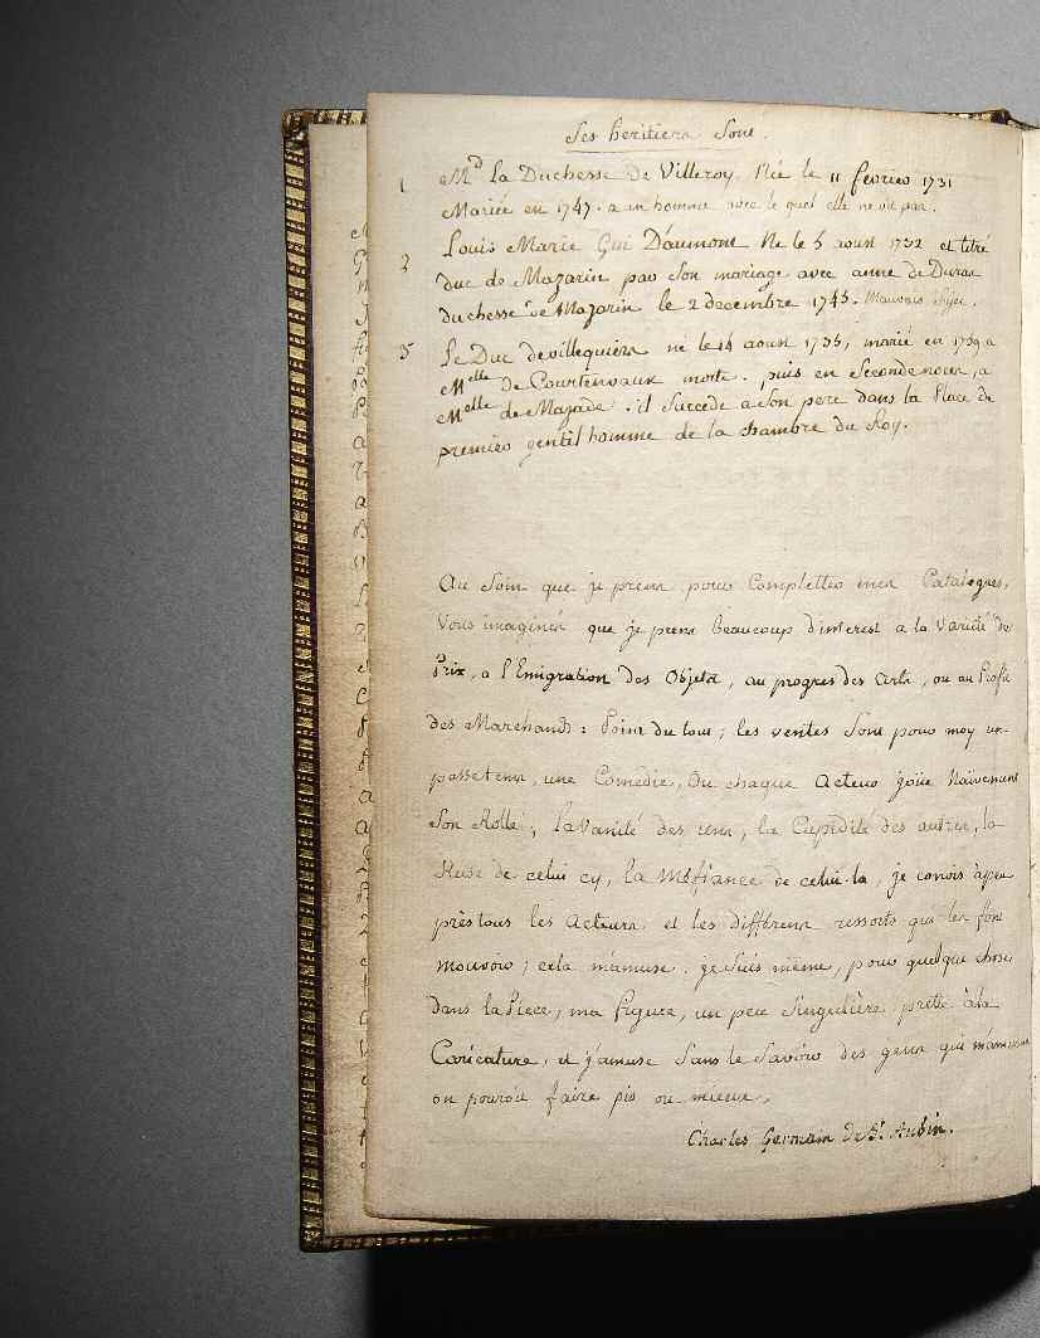 Ses heritiers Sont.
1 M.d La Duchesse De Villeroy. Née le 11 fevrier 1731
Mariée en 1747. a un homme avec le quel elle ne vit pas.
2 Louis Marie Gui D'aumont Né le 5 aoust 1732 et titré
duc de Mazarin par Son mariage avec anne de Duras
duchesse de Mazarin le 2 decembre 1745. Mauvais Sujet.
3 Le Duc de villequiers né le 14 aoust 1735, marié en 1759 a
Melle De Courtenvaux morte. puis en Seconde noces, a
Melle de Mazade. il Succede a Son pere dans la Place de
premier gentil homme de la chambre du Roy.
Au Soin que je prens pour Completter mes Catalogues,
Vous imaginés que je prens beaucoup d'interest a la Varieté des
Prix, a l'Emigration des Objets, au progres des Arts, ou au Profit
des Marchands: Point du tout; les ventes Sont pour moy un
passetems, une Comédie, Ou chaque Acteur joüe Naïvement
Son Rolle; la Vanité des uns, la Cupidité des autres, la
Ruse de celui cy, la Méfiance de celui-la, je conois àpeu
près tous les Acteurs et les differens ressorts qui les font
mouvoir; cela m'amuse. je Suis même, pour quelque chose
dans la Piece, ma figure, un peu Singulière prette à la
Caricature, et j'amuse Sans le Savoir des gens qui m'amusent
on pouroit faire pis ou mieux.
Charles Germain de St. Aubin.